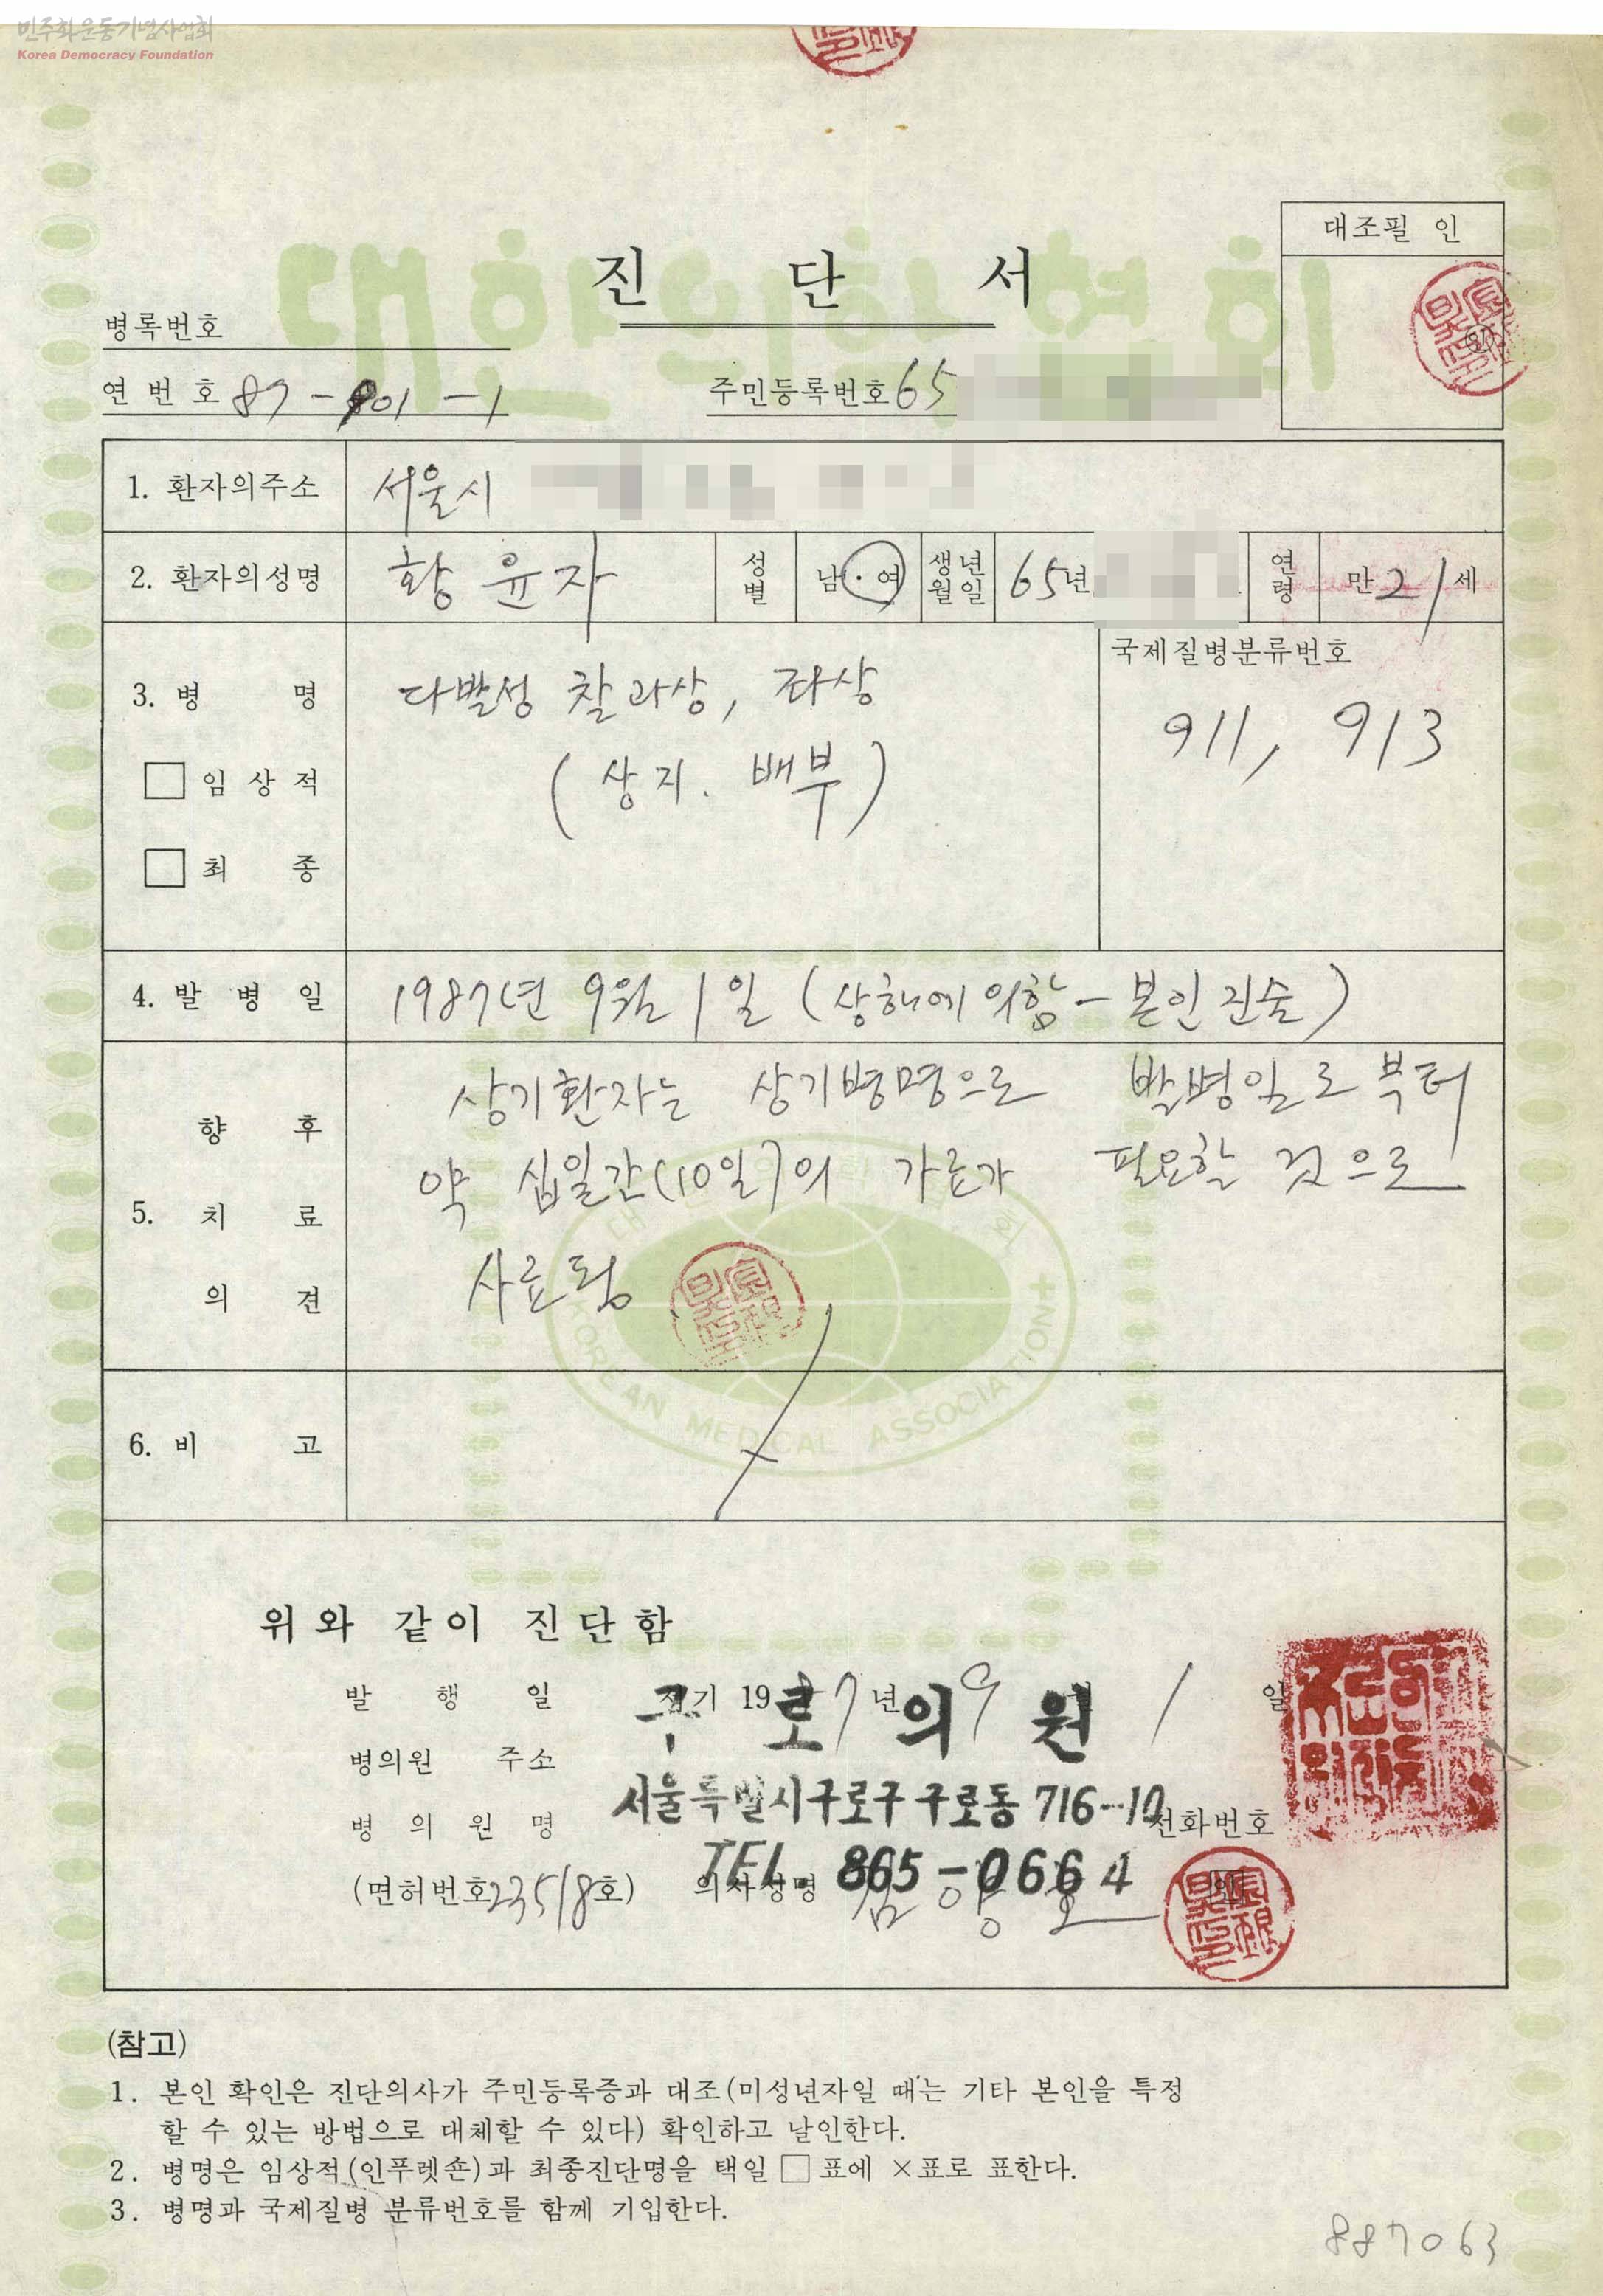 민주화운동기념사업회
Korea Democracy Foundation
대한의학협회
진 단 서
대조필 인
병록번호
연 번 호 87-901-1
주민등록번호 65
1. 환자의주소 서울시
2. 환자의성명 황윤자 성별 남·여 생년월일 65년 연령 만 21 세
3. 병 명 다발성 찰과상, 좌상
국제질병분류번호
(상지. 배부)
911, 913
□ 임 상 적
□ 최 종
4. 발 병 일 1987년 9월 1일 (상해에 의함-본인 진술)
5. 향 후 치 료 의 견
상기환자는 상기병명으로 발병일로부터
약 십일간(10일)의 가료가 필요할 것으로
사료됨.
KOREAN MEDICAL ASSOCIATION
6. 비 고
위와 같이 진단함
발 행 일 서기 1987년 9 1 일
구로의원
병의원 주소
서울특별시구로구 구로동 716-10
병 의 원 명 전화번호
TEL. 865-0664
(면허번호 23518호) 의사성명
(참고)
1. 본인 확인은 진단의사가 주민등록증과 대조(미성년자일 때는 기타 본인을 특정
할 수 있는 방법으로 대체할 수 있다) 확인하고 날인한다.
2. 병명은 임상적(인푸렛숀)과 최종진단명을 택일 □표에 ×표로 표한다.
3. 병명과 국제질병 분류번호를 함께 기입한다.
887063